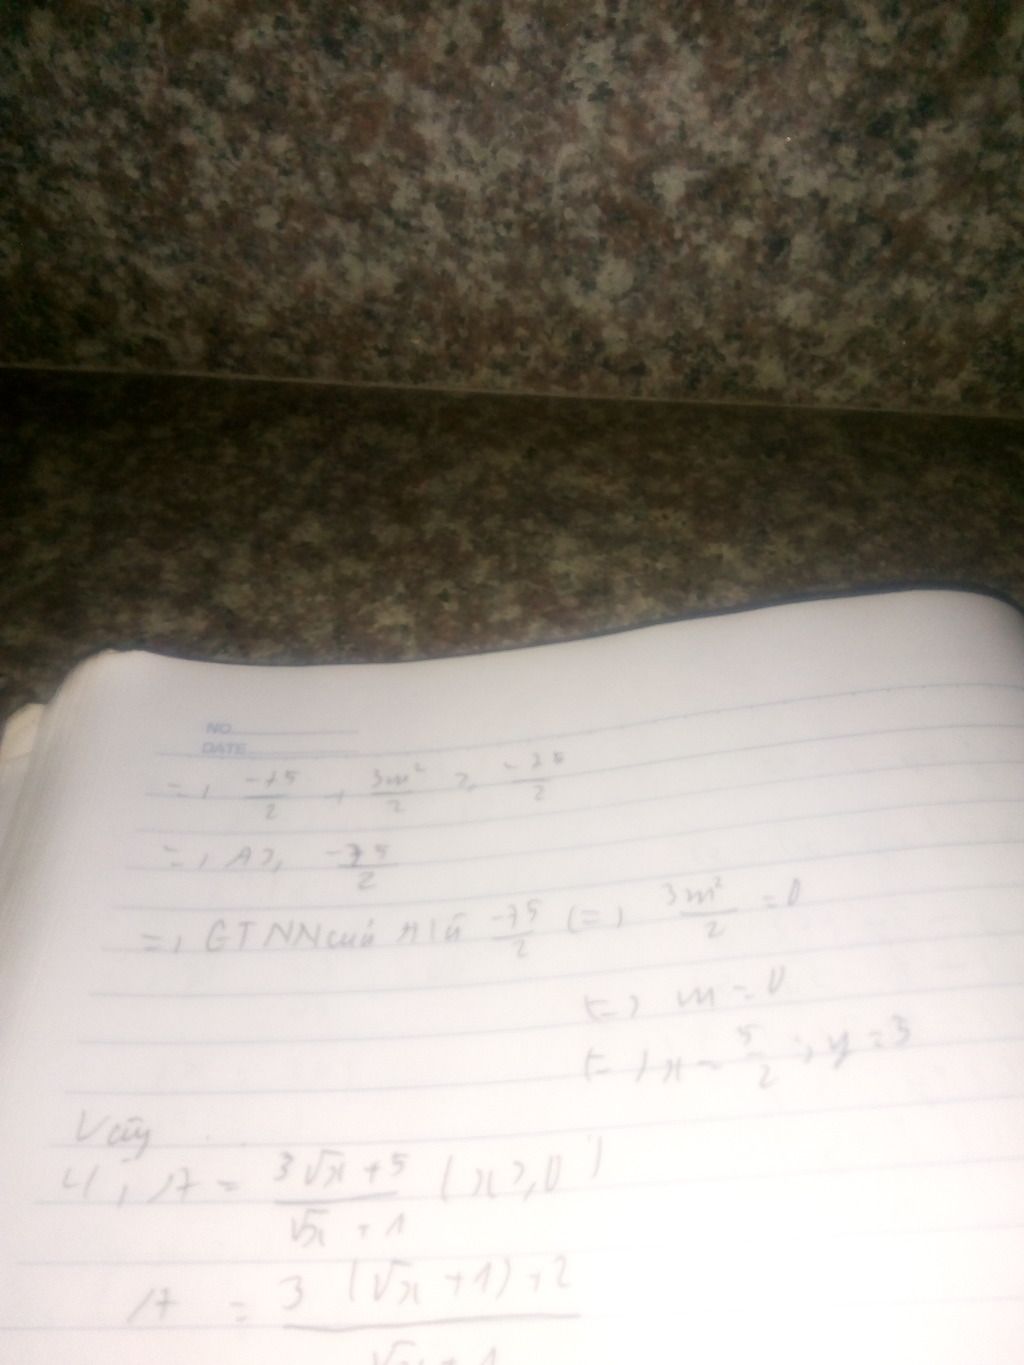 NO
DATE
=) -75/2 + 3m²/2 ≥ -75/2
=) A ≥ -75/2
=) GTNN của A là -75/2 (=) 3m²/2 = 0
(=) m = 0
(=) x = 5/2 ; y = 3
Vậy ...
4, A = (3√x + 5)/(√x + 1) (x ≥ 0)
A = (3(√x + 1) + 2)/(√x + 1)